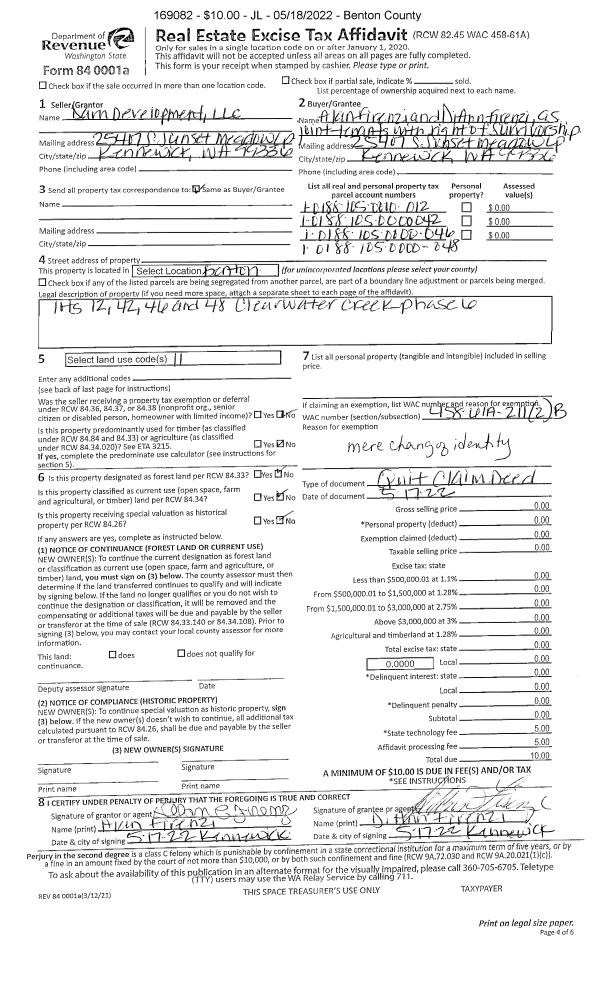 169082 - $10.00 - JL - 05/18/2022 - Benton County
Department of
Revenue
Washington State
Form 84 0001a
Real Estate Excise Tax Affidavit (RCW 82.45 WAC 458-61A)
Only for sales in a single location code on or after January 1, 2020.
This affidavit will not be accepted unless all areas on all pages are fully completed.
This form is your receipt when stamped by cashier. Please type or print.
Check box if the sale occurred in more than one location code.
Check box if partial sale, indicate % sold.
List percentage of ownership acquired next to each name.
1 Seller/Grantor
Name Development, LLC
Mailing address 25407 S. Sunset Meadow Lp
City/state/zip Kennewick, WA 99336
Phone (including area code)
2 Buyer/Grantee
Name Alan Firenzi and DiAnn Firenzi, as
joint tenants with right of survivorship
Mailing address 25407 S. Sunset Meadow Lp
City/state/zip Kennewick WA 99336
Phone (including area code)
3 Send all property tax correspondence to: Same as Buyer/Grantee
Name
Mailing address
City/state/zip
List all real and personal property tax parcel account numbers
Personal property?
Assessed value(s)
1-0188-105-0000-012 $ 0.00
1-0188-105-0000042 $ 0.00
1-0188-105-0000-046 $ 0.00
1-0188-105-0000-048
4 Street address of property
This property is located in Select Location Benton (for unincorporated locations please select your county)
Check box if any of the listed parcels are being segregated from another parcel, are part of a boundary line adjustment or parcels being merged.
Legal description of property (if you need more space, attach a separate sheet to each page of the affidavit).
lots 12, 42, 46 and 48 Clearwater Creek phase 6
5 Select land use code(s) 11
Enter any additional codes
(see back of last page for instructions)
Was the seller receiving a property tax exemption or deferral
under RCW 84.36, 84.37, or 84.38 (nonprofit org., senior
citizen or disabled person, homeowner with limited income)? Yes No
Is this property predominantly used for timber (as classified
under RCW 84.84 and 84.33) or agriculture (as classified
under RCW 84.34.020)? See ETA 3215. Yes No
If yes, complete the predominate use calculator (see instructions for
section 5).
6 Is this property designated as forest land per RCW 84.33? Yes No
Is this property classified as current use (open space, farm
and agricultural, or timber) land per RCW 84.34? Yes No
Is this property receiving special valuation as historical
property per RCW 84.26? Yes No
If any answers are yes, complete as instructed below.
(1) NOTICE OF CONTINUANCE (FOREST LAND OR CURRENT USE)
NEW OWNER(S): To continue the current designation as forest land
or classification as current use (open space, farm and agriculture, or
timber) land, you must sign on (3) below. The county assessor must then
determine if the land transferred continues to qualify and will indicate
by signing below. If the land no longer qualifies or you do not wish to
continue the designation or classification, it will be removed and the
compensating or additional taxes will be due and payable by the seller
or transferor at the time of sale (RCW 84.33.140 or 84.34.108). Prior to
signing (3) below, you may contact your local county assessor for more
information.
This land: does does not qualify for
continuance.
Deputy assessor signature Date
(2) NOTICE OF COMPLIANCE (HISTORIC PROPERTY)
NEW OWNER(S): To continue special valuation as historic property, sign
(3) below. If the new owner(s) doesn't wish to continue, all additional tax
calculated pursuant to RCW 84.26, shall be due and payable by the seller
or transferor at the time of sale.
(3) NEW OWNER(S) SIGNATURE
Signature Signature
Print name Print name
7 List all personal property (tangible and intangible) included in selling
price.
If claiming an exemption, list WAC number and reason for exemption.
WAC number (section/subsection) 458-61A-211(2)B
Reason for exemption
mere change of identity
Type of document Quit Claim Deed
Date of document 5-17-22
Gross selling price 0.00
*Personal property (deduct) 0.00
Exemption claimed (deduct) 0.00
Taxable selling price 0.00
Excise tax: state
Less than $500,000.01 at 1.1% 0.00
From $500,000.01 to $1,500,000 at 1.28% 0.00
From $1,500,000.01 to $3,000,000 at 2.75% 0.00
Above $3,000,000 at 3% 0.00
Agricultural and timberland at 1.28% 0.00
Total excise tax: state 0.00
0.0000 Local 0.00
*Delinquent interest: state 0.00
Local 0.00
*Delinquent penalty 0.00
Subtotal 0.00
*State technology fee 5.00
Affidavit processing fee 5.00
Total due 10.00
A MINIMUM OF $10.00 IS DUE IN FEE(S) AND/OR TAX
*SEE INSTRUCTIONS
8 I CERTIFY UNDER PENALTY OF PERJURY THAT THE FOREGOING IS TRUE AND CORRECT
Signature of grantor or agent
Name (print) Alan Firenzi
Date & city of signing 5-17-22 Kennewick
Signature of grantee or agent
Name (print) DiAnn Firenzi
Date & city of signing 5-17-22 Kennewick
Perjury in the second degree is a class C felony which is punishable by confinement in a state correctional institution for a maximum term of five years, or by
a fine in an amount fixed by the court of not more than $10,000, or by both such confinement and fine (RCW 9A.72.030 and RCW 9A.20.021(1)(c)).
To ask about the availability of this publication in an alternate format for the visually impaired, please call 360-705-6705. Teletype
(TTY) users may use the WA Relay Service by calling 711.
REV 84 0001a(3/12/21)
THIS SPACE TREASURER'S USE ONLY
TAXPAYER
Print on legal size paper.
Page 4 of 6